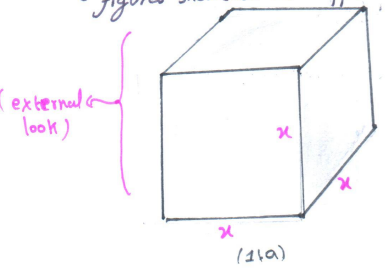 figures
(external
look)
x
x
x
(1.a)